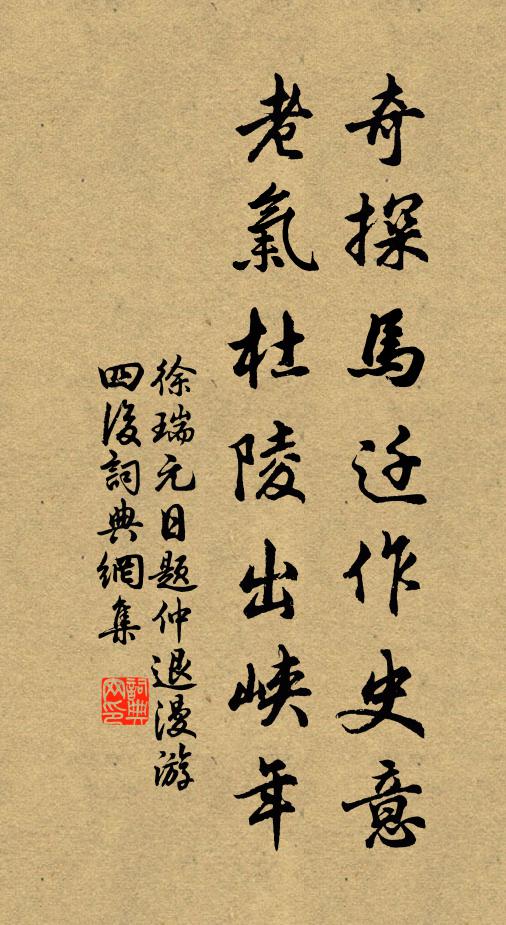 奇探馬迁作史意
老氣杜陵出峽年
徐瑞元日題仲退漫游
四後詞典網集
詞典網印